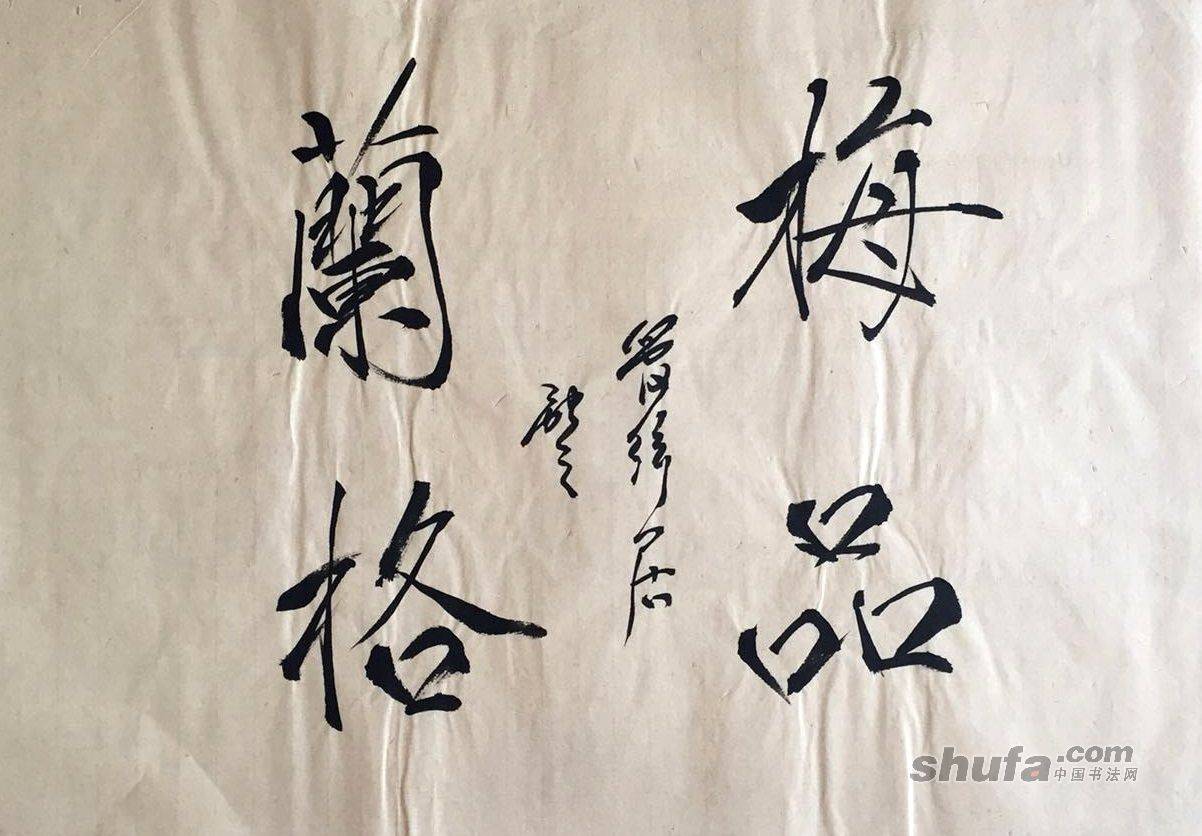 梅品
蘭格
居
shufa.com
中国书法网